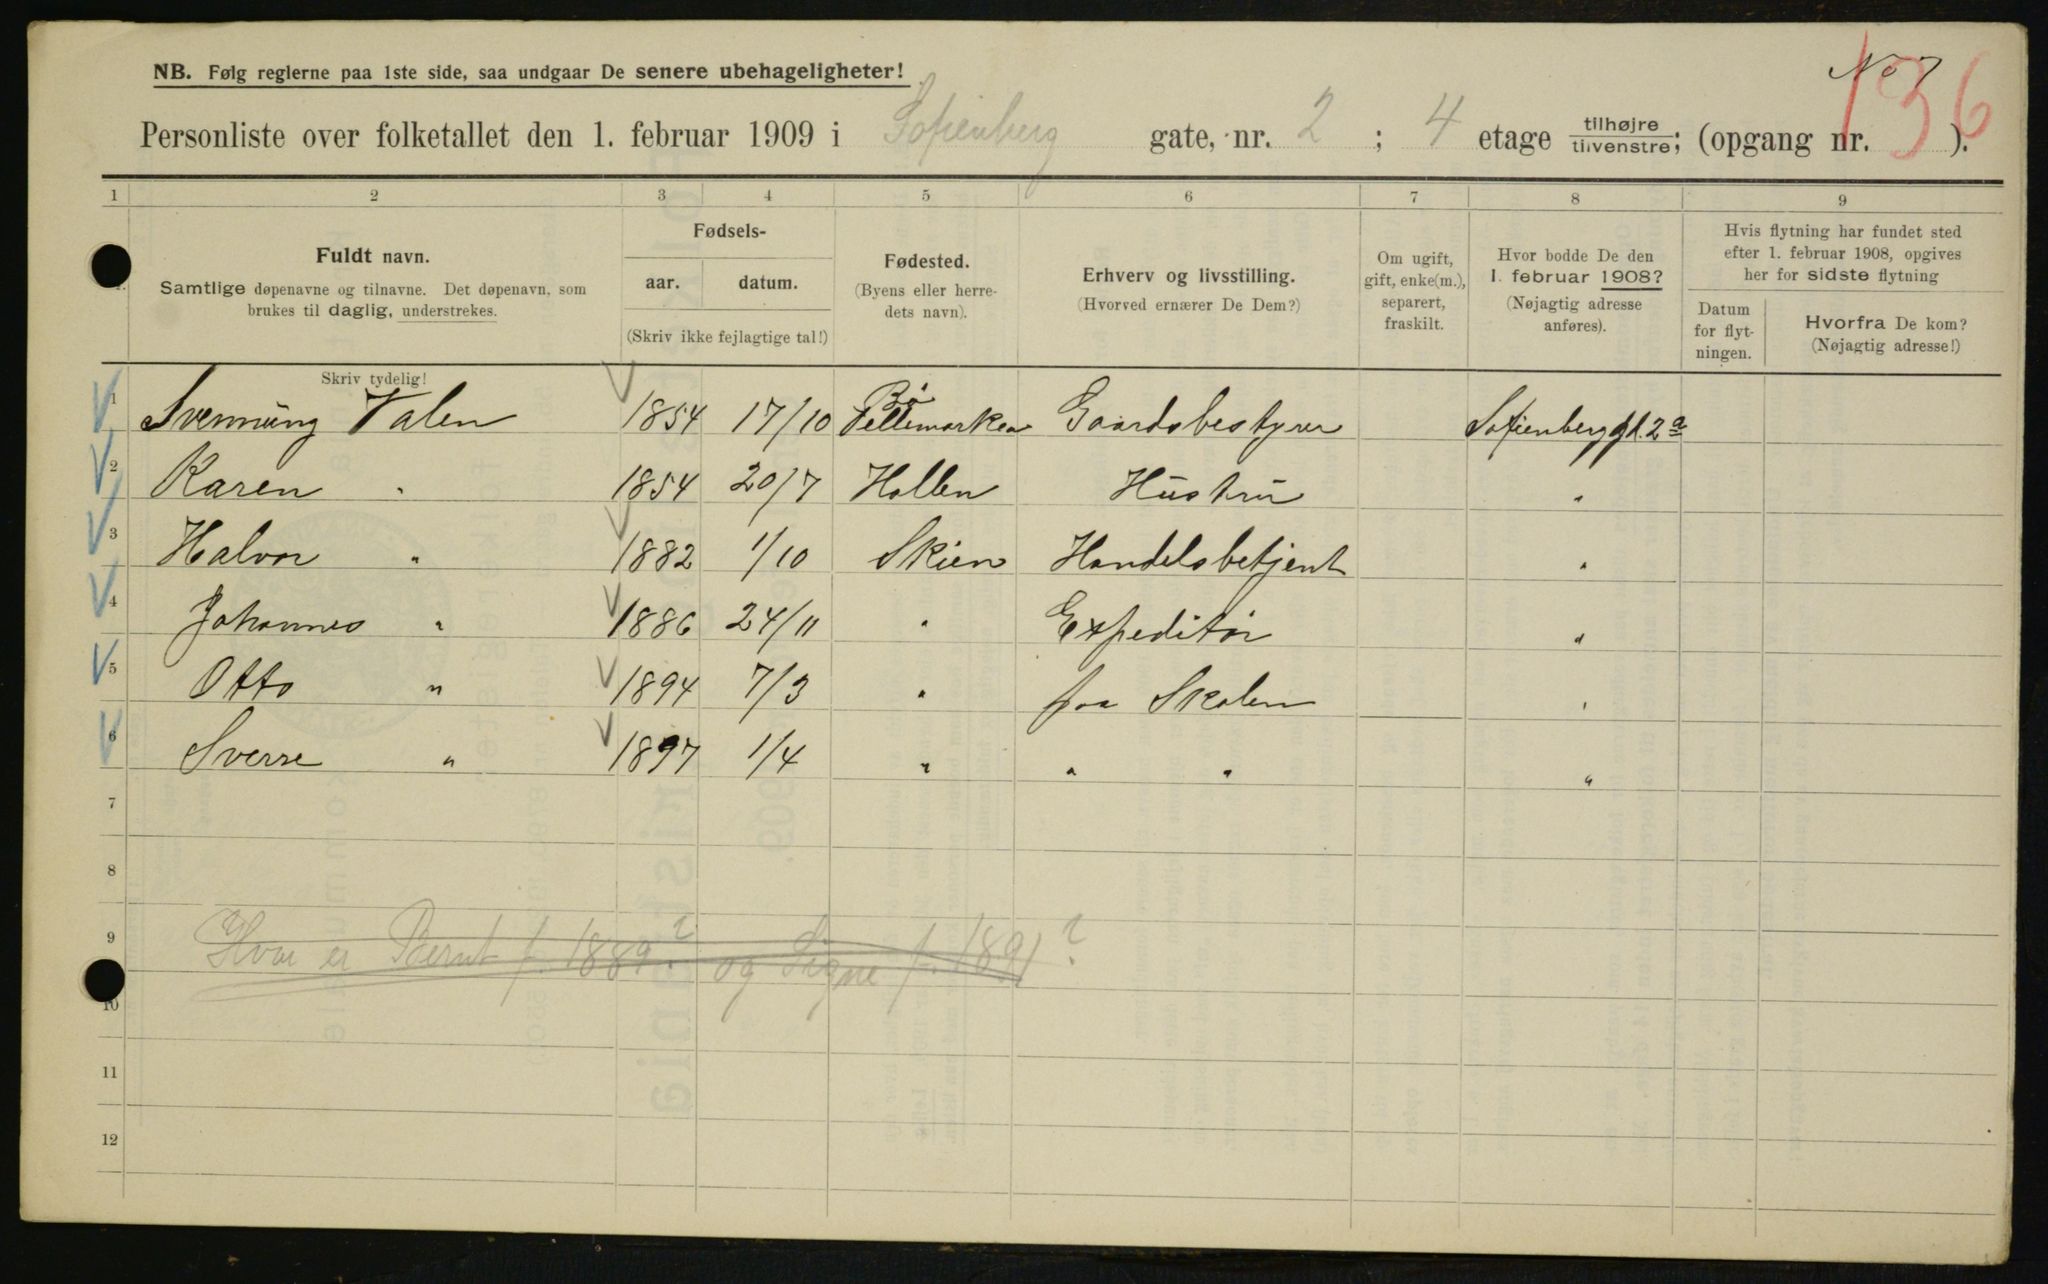 No 7
136
NB. Følg reglerne paa 1ste side, saa undgaar De senere ubehageligheter!
Personliste over folketallet den 1. februar 1909 i Sofienberg gate, nr. 2 ; 4 etage tilhøjre tilvenstre; (opgang nr. ).
1 2 3 4 5 6 7 8 9
Fuldt navn.
Samtlige døpenavne og tilnavne. Det døpenavn, som
brukes til daglig, understrekes.
Skriv tydelig!
Fødsels-
aar. datum.
(Skriv ikke fejlagtige tal!)
Fødested.
(Byens eller herre-
dets navn).
Erhverv og livsstilling.
(Hvorved ernærer De Dem?)
Om ugift,
gift, enke(m.),
separert,
fraskilt.
Hvor bodde De den
1. februar 1908?
(Nøjagtig adresse
anføres).
Hvis flytning har fundet sted
efter 1. februar 1908, opgives
her for sidste flytning
Datum
for flyt-
ningen.
Hvorfra De kom?
(Nøjagtig adresse!)
1 Svennung Valen 1854 17/10 Bø Tellemarken Gaardsbestyrer Sofienberggd. 2a
2 Karen " 1854 20/7 Hollen Hustru "
3 Halvor " 1882 1/10 Skien Handelsbetjent "
4 Johannes " 1886 24/11 " Expeditør "
5 Otto " 1894 7/3 " paa Skolen "
6 Sverre " 1897 1/4 " " " "
7
8
9 Hvor er Bernt f. 1889? og Signe f. 1891?
10
11
12